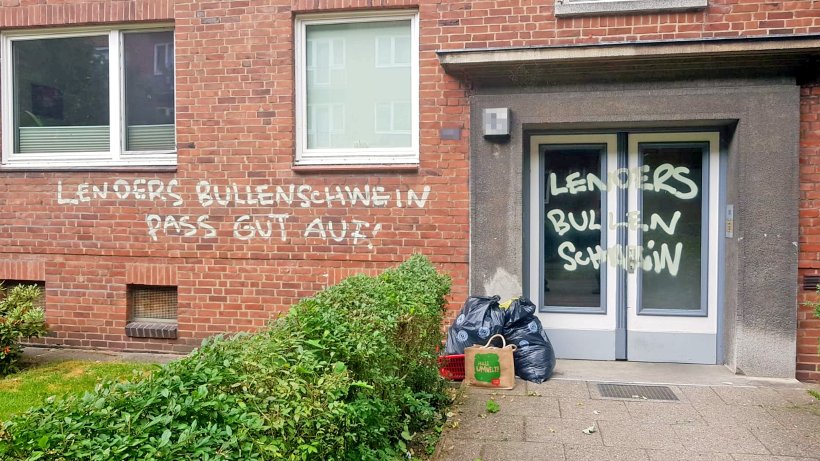 LENDERS BULLENSCHWEIN
PASS GUT AUF!
LENDERS
BULLEN
SCHWEIN
UMWELT!